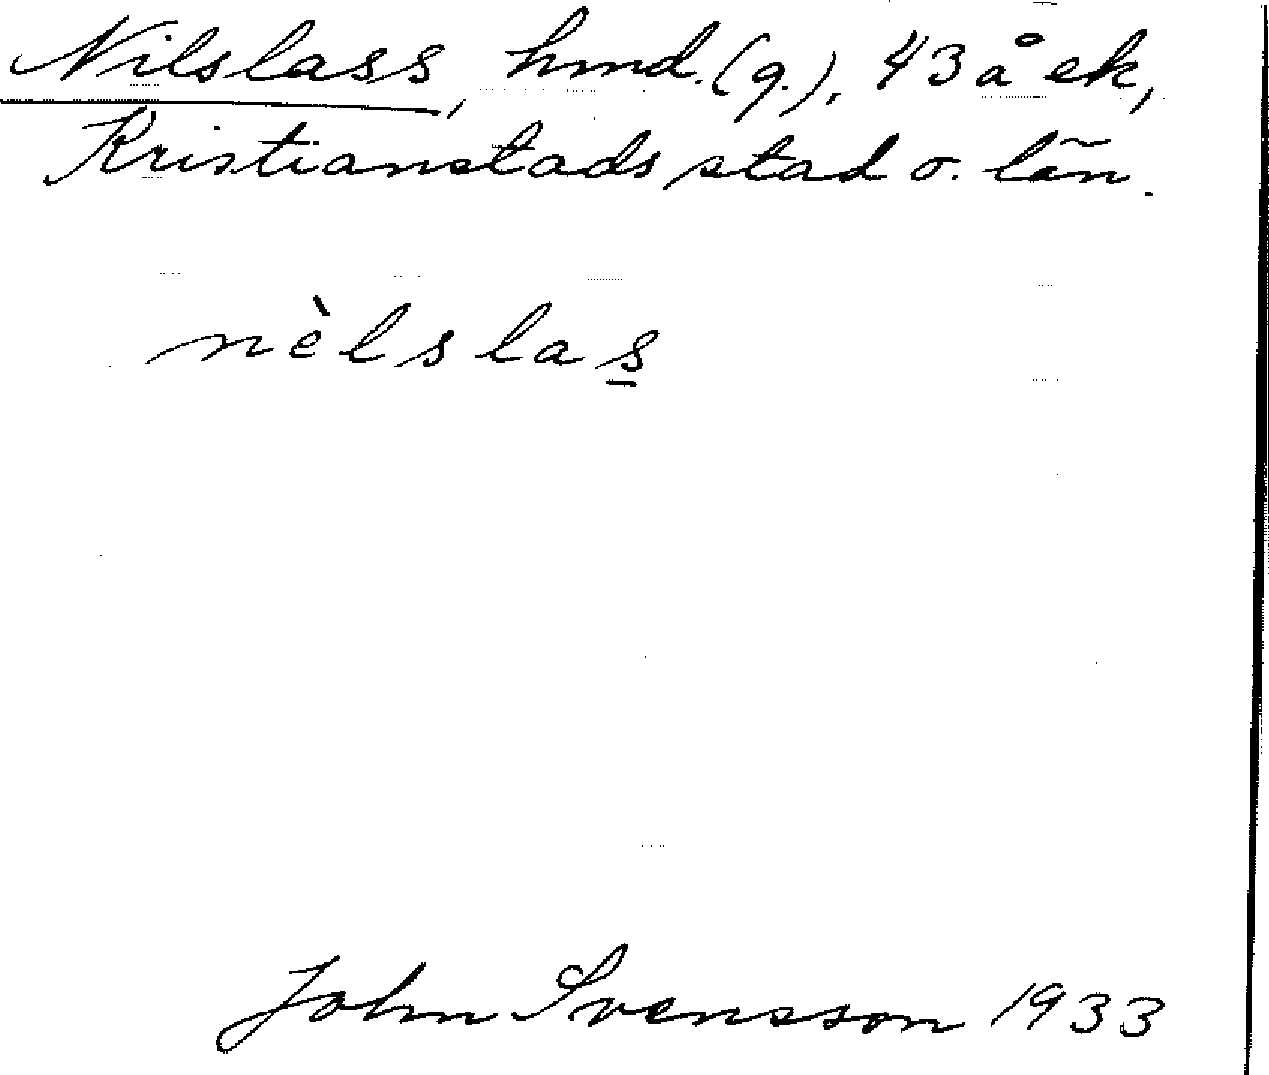 Nilslass, hmd. (g.), 43 å ek,
Kristianstads stad o. län.
nèlslas
John Svensson 1933